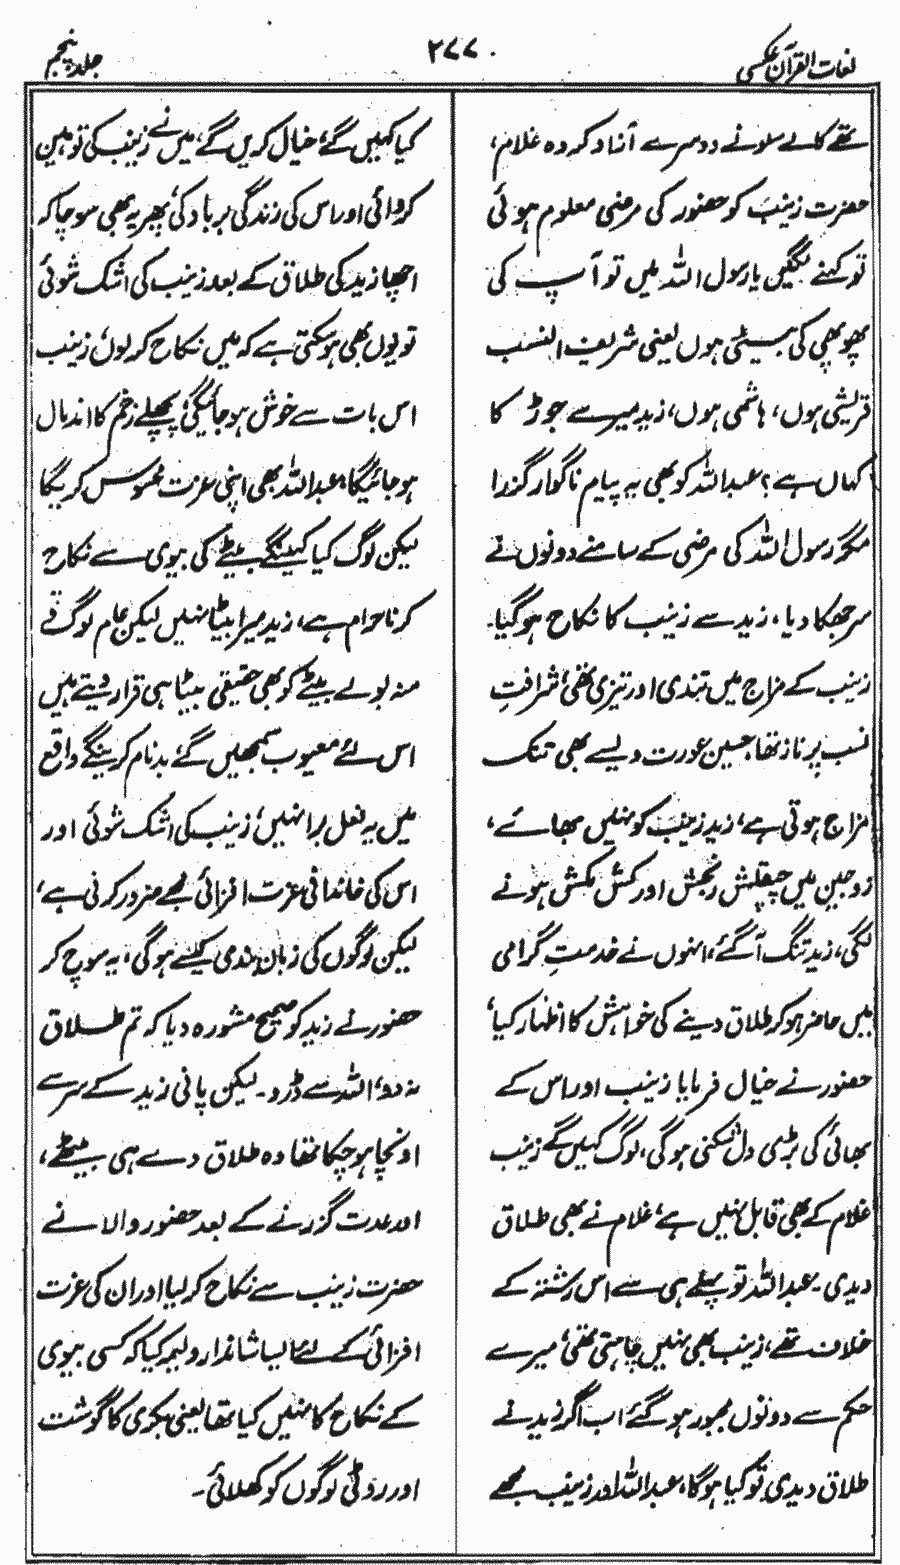 لغات القرآن عکسی
۲۷۷
جلد پنجم
تھے کالے سلونے دوسرے آزاد کردہ غلام،
حضرت زینب کو حضور کی مرضی معلوم ہوئی
تو کہنے لگیں یا رسول اللہ میں تو آپ کی
پھوپھی کی بیٹی ہوں یعنی شریف النسب
قریشی ہوں، ہاشمی ہوں، زید میرے جوڑ کا
کہاں ہے؟ عبداللہ کو بھی یہ پیام ناگوار گذرا
مگر رسول اللہ کی مرضی کے سامنے دونوں نے
سر جھکا دیا، زید سے زینب کا نکاح ہوگیا۔
زینب کے مزاج میں تندی اور تیزی تھی، شرافتِ
نسب پر ناز تھا، حسین عورت ویسے بھی تنک
مزاج ہوتی ہے، زید زینب کو نہیں بھائے،
زوجین میں چپقلش رنجش اور کش مکش ہونے
لگی، زید تنگ آگئے، انہوں نے خدمتِ گرامی
میں حاضر ہوکر طلاق دینے کی خواہش کا اظہار کیا،
حضور نے خیال فرمایا زینب اور اس کے
بھائی کی بڑی دل شکنی ہوگی، لوگ کہیں گے زینب
غلام کے بھی قابل نہیں ہے، غلام نے بھی طلاق
دیدی۔ عبداللہ تو پہلے ہی سے اس رشتہ کے
خلاف تھے، زینب بھی نہیں چاہتی تھی، میرے
حکم سے دونوں مجبور ہوگئے اب اگر زید نے
طلاق دیدی تو کیا ہوگا، عبداللہ اور زینب مجھے
کیا کہیں گے، خیال کریں گے، میں نے زینب کی توہین
کروائی اور اس کی زندگی برباد کی، پھر یہ بھی سوچا کہ
اچھا زید کی طلاق کے بعد زینب کی اشک شوئی
تو یوں بھی ہوسکتی ہے کہ میں نکاح کرلوں، زینب
اس بات سے خوش ہو جائیگی، پچھلے زخم کا اندمال
ہو جائیگا، عبداللہ بھی اپنی عزت محسوس کریگا
لیکن لوگ کیا کہینگے بیٹے کی بیوی سے نکاح
کرنا حرام ہے، زید میرا بیٹا نہیں لیکن عام لوگ تو
منہ بولے بیٹے کو بھی حقیقی بیٹا ہی قرار دیتے ہیں
اس لئے معیوب سمجھیں گے، بدنام کرینگے واقع
میں یہ فعل برا نہیں، زینب کی اشک شوئی اور
اس کی خاندانی عزت افزائی مجھے ضرور کرنی ہے،
لیکن لوگوں کی زبان بندی کیسے ہوگی، یہ سوچ کر
حضور نے زید کو صحیح مشورہ دیا کہ تم طلاق
نہ دو، اللہ سے ڈرو۔ لیکن پانی زید کے سر سے
اونچا ہوچکا تھا وہ طلاق دے ہی بیٹھے،
اور عدت گزرنے کے بعد حضور والا نے
حضرت زینب سے نکاح کرلیا اور ان کی عزت
افزائی کے لئے ایسا شاندار ولیمہ کیا کہ کسی بیوی
کے نکاح کا نہیں کیا تھا یعنی بکری کا گوشت
اور روٹی لوگوں کو کھلائی۔